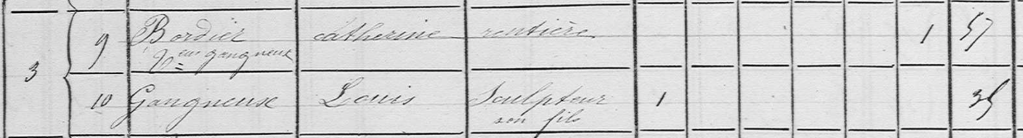 9 Bordier Catherine rentière 1 57
Vve Gangneux
3
10 Gangneux Louis Sculpteur 1 35
son fils